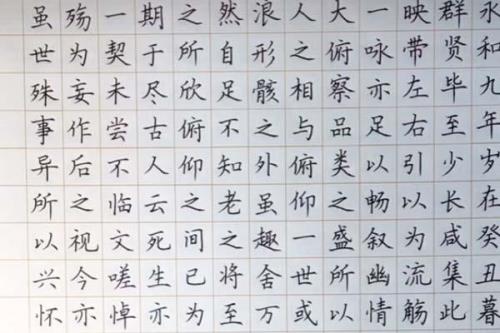 永和九年岁在癸丑暮
群贤毕至少长咸集此
映带左右引以为流觞
一咏亦足以畅叙幽情
大俯察品类之盛所以
人之相与俯仰一世或
浪形骸之外虽趣舍万
然自足不知老之将至
之所欣俯仰之间已为
期于尽古人云死生亦
一契未尝不临文嗟悼
殇为妄作后之视今亦
虽世殊事异所以兴怀